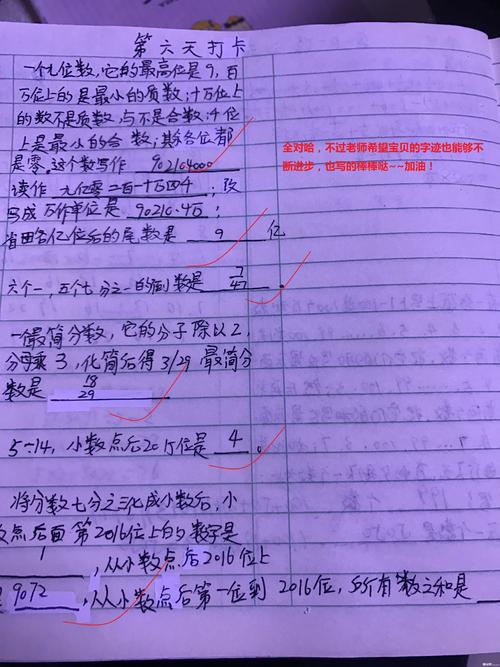 第六天打卡
一个九位数，它的最高位是9，百
万位上的是最小的质数，十万位上
的数不是质数，与不是合数，千位
上是最小的合数，其余各位都
是零。这个数写作 902104000
读作 九亿零二百一十万四千，改
写成万作单位是 90210.4万；
省田各亿位后的尾数是 9 亿
全对哈，不过老师希望宝贝的字迹也能够不
断进步，也写的棒棒哒~~加油！
六个一，五个七分之一的倒数是 7/47。
一最简分数，它的分子除以2，
分母乘3，化简后得3/29 最简分
数是 18/29．
5÷14，小数点后20位是 4。
将分数七分之三化成小数后，小
点后面第2016位上的数字是
1，从小数点后2016位上
9072，从小数点后第一位到2016位，所有数之和是